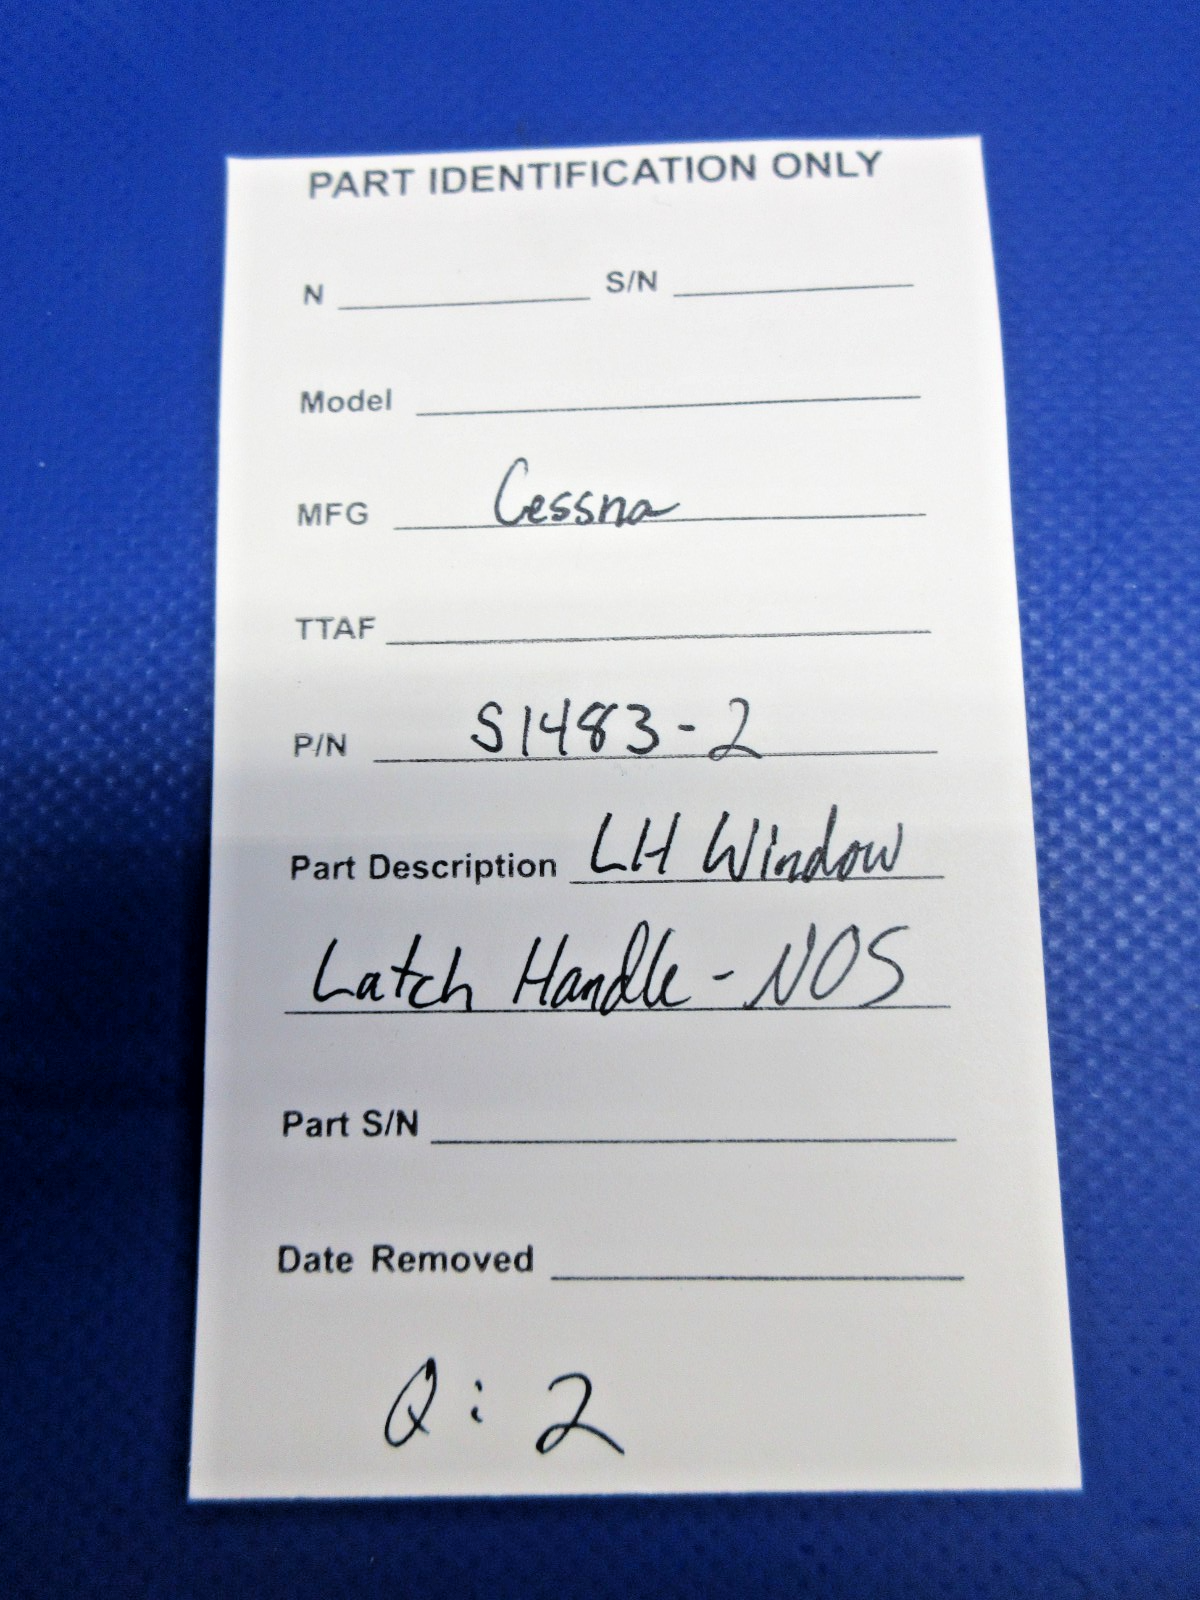 PART IDENTIFICATION ONLY
N S/N
Model
MFG Cessna
TTAF
P/N S1483-2
Part Description LH Window
Latch Handle - NOS
Part S/N
Date Removed
Q: 2